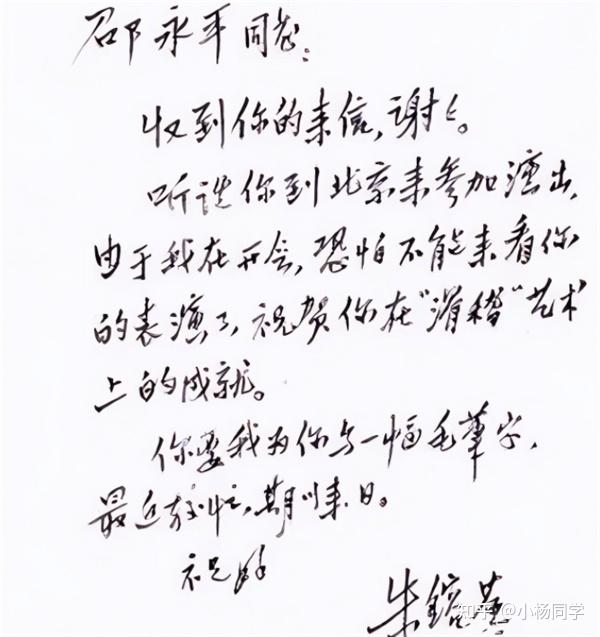 邵永平同志：
收到你的来信，谢々。
听说你到北京来参加演出，
由于我在开会，恐怕不能来看你
的表演了，祝贺你在“滑稽“艺术
上的成就。
你要我为你写一幅毛筆字，
最近较忙，期以来日。
祝好
朱鎔基
知乎 @小杨同学